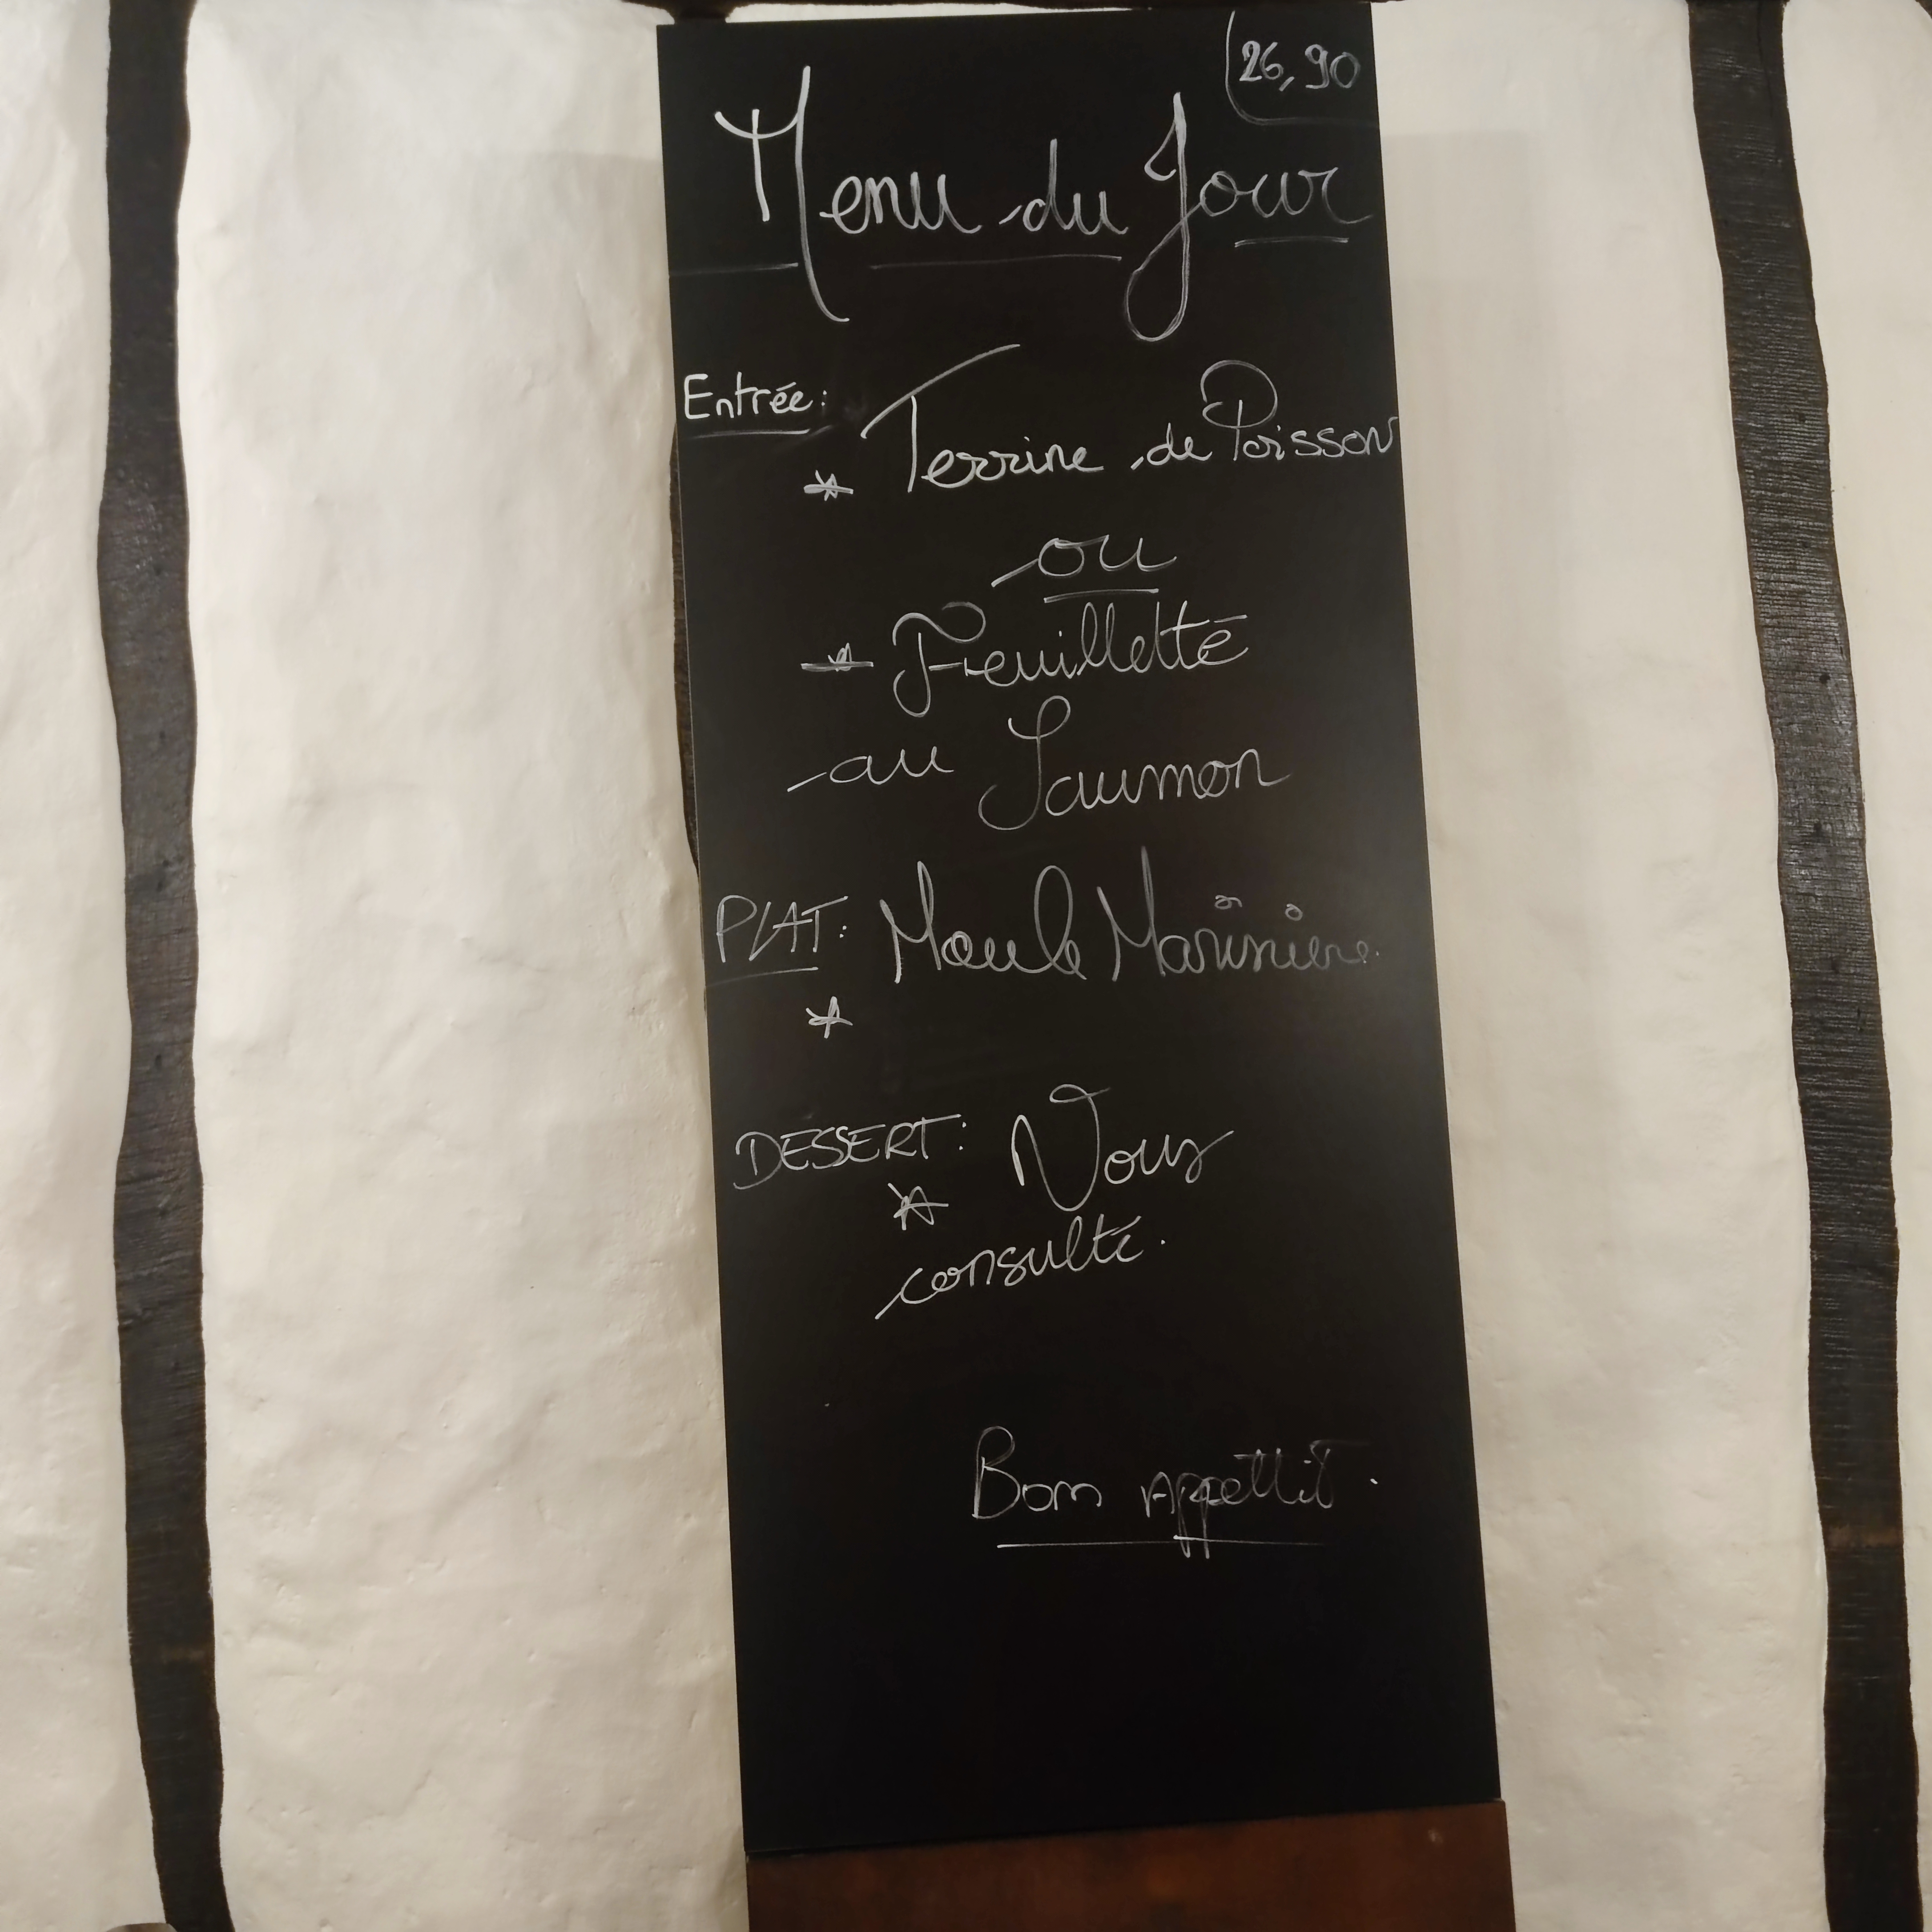 26,90
Menu du Jour
Entrée:
* Terrine de Poisson
ou
* Feuilletté
au Saumon
PLAT: Moule Marinière.
*
DESSERT: Nous
* consulté.
Bon Appettit.